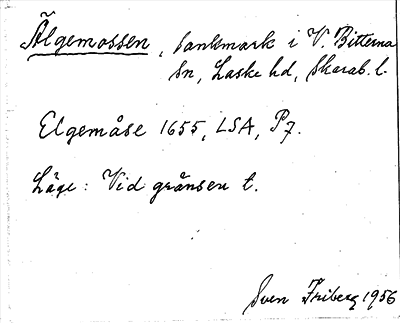 Älgemossen, sankmark i V. Bitterna
sn, Laske hd, Skarab. l.
Elgemåse 1655, LSA, P7.
Läge: Vid gränsen t.
Sven Friberg 1956